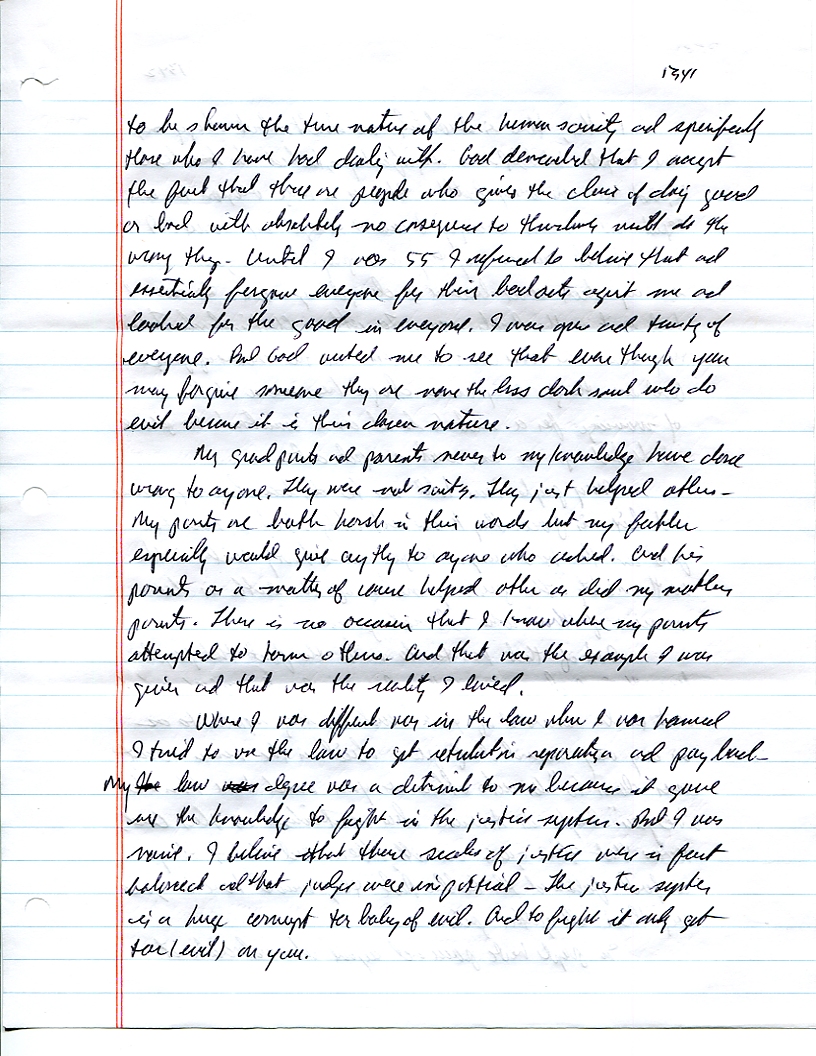 1341
to be shown the true nature of the human society and specifically
those who I have had dealing with. God demanded that I accept
the fact that there are people who given the choice of doing good
or bad with absolutely no consequence to themselves will do the
wrong thing. Until I was 55 I refused to believe that and
essentially forgave everyone for their bad acts against me and
looked for the good in everyone. I was open and trusting of
everyone. But God wanted me to see that even though you
may forgive someone they are none the less dark soul who do
evil because it is their chosen nature.
My grandparents and parents never to my knowledge have done
wrong to anyone. They were not saints. They just helped others -
My parents are both harsh in their words but my father
especially would give anything to anyone who asked. And his
parents as a matter of course helped other as did my mothers
parents. There is no occasion that I know where my parents
attempted to harm others. And that was the example I was
given and that was the reality I lived.
Where I was different was in the law when I was harmed
I tried to use the law to get retribution reparation and payback -
My law degree was a detriment to me because it gave
me the knowledge to fight in the justice system. But I was
naive. I believe that these scales of justice were in fact
balanced and that judges were impartial - The justice system
is a huge corrupt tar baby of evil. And to fight it only get
tar (evil) on you.